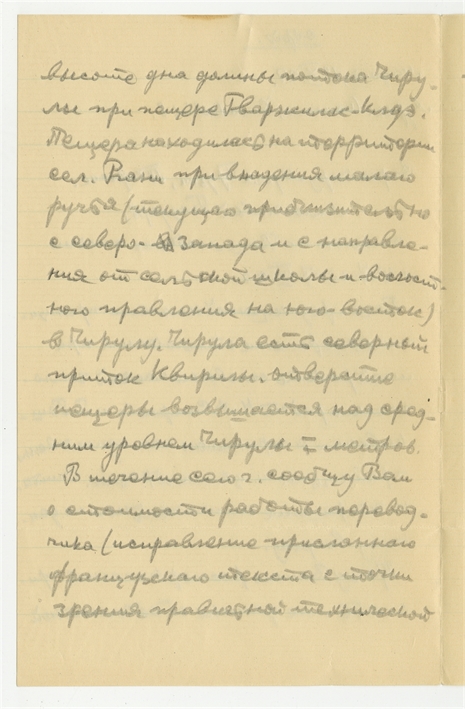 высоте дна долины потока Чиру-
лы при пещере Гварджилас-Клдэ.
Пещера находилась на территории
сел. Ргани при впадения малаго
ручья (текущаго приблизительно
с северо-запада и с направле-
ния от сельской школы и
наго правления на юго-восток)
в Чирулу. Чирула есть северный
приток Квирилы. отверстие
пещеры возвышается над сред-
ним уровнем Чирулы метров.
В течение сего г. сообщу Вам
о стоимости работы перевод-
чика (исправление присланнаго
французскаго текста с точки
зрения правильной технической